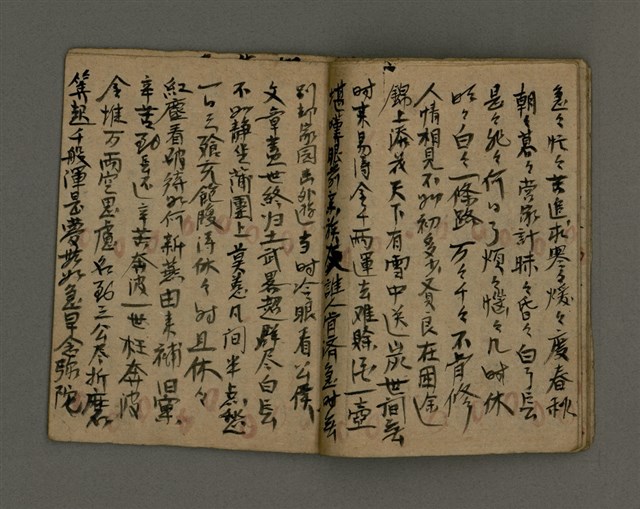 急々忙々苦追求寒々煖々度春秋
朝々暮々営家計昧々昏々白了头
是々非々何日了煩々惱々几时休
明々白々一條路万々千々不肯修
人情相見不如初多少友良在困途
錦上添花天下有雪中送炭世间無
时来易得金千両運去难賒酒一壺
堪嘆眼前親族友誰人肯濟急时無
別却家园出外遊当时冷眼看公侯
文章盖世終归土武畧超群尽白头
不如静坐蒲團上莫惹凡间半点愁
一日三飡方饒饅得休々时且休々
紅塵看破待如何新蕪由来補旧窠
辛苦到头还辛苦奔波一世枉奔波
金堆万両空思慮名到三公尽折磨
算起千般渾是夢如此急早念弥陀